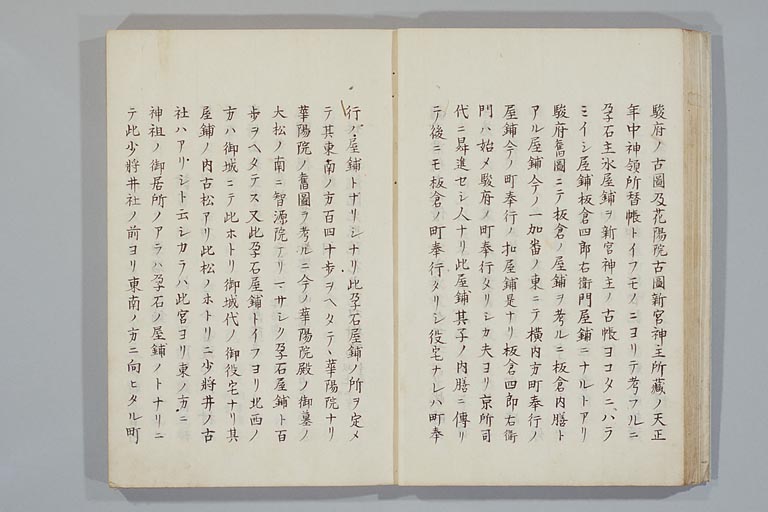 駿府ノ古圖及花陽院古圖新宮神主所藏ノ天正
年中神領所替帳トイフモノニヨリテ考フルニ
孕石主水屋鋪ヲ新宮神主ノ古帳ヨコタニハラ
ミイシ屋鋪板倉四郎右衛門屋鋪ニナルトアリ
駿府舊圖ニテ板倉ノ屋鋪ヲ考ルニ板倉内膳ト
アル屋鋪今ノ一加番ノ東ニテ横内方町奉行ノ
屋鋪今ノ町奉行ノ扣屋鋪是ナリ板倉四郎右衛
門ハ始メ駿府ノ町奉行タリシカ夫ヨリ京所司
代ニ昇進セシ人ナリ此屋鋪其子ノ内膳ニ傳リ
テ後ニモ板倉ノ町奉行タリシ役宅ナレハ町奉
行ノ屋鋪トナリシナリ此孕石屋鋪ノ所ヲ定メ
テ其東南ノ方百四十歩ヲヘタテヽ華陽院ナリ
華陽院ノ舊圖ヲ考ルニ今ノ華陽院殿ノ御墓ノ
大松ノ南ニ智源院アリマサシク孕石屋鋪ト百
歩ヲヘタテス又此孕石屋鋪トイフヨリ北西ノ
方ハ御城ニテ此ホトリ御城代ノ御役宅ナリ其
屋鋪ノ内古松アリ此松ノホトリニ少將井ノ古
社ハアリシト云シカラハ此宮ヨリ東ノ方ニ
神祖ノ御居所ノアラハ孕石ノ屋鋪ノトナリニ
テ此少將井社ノ前ヨリ東南ノ方ニ向ヒタル町